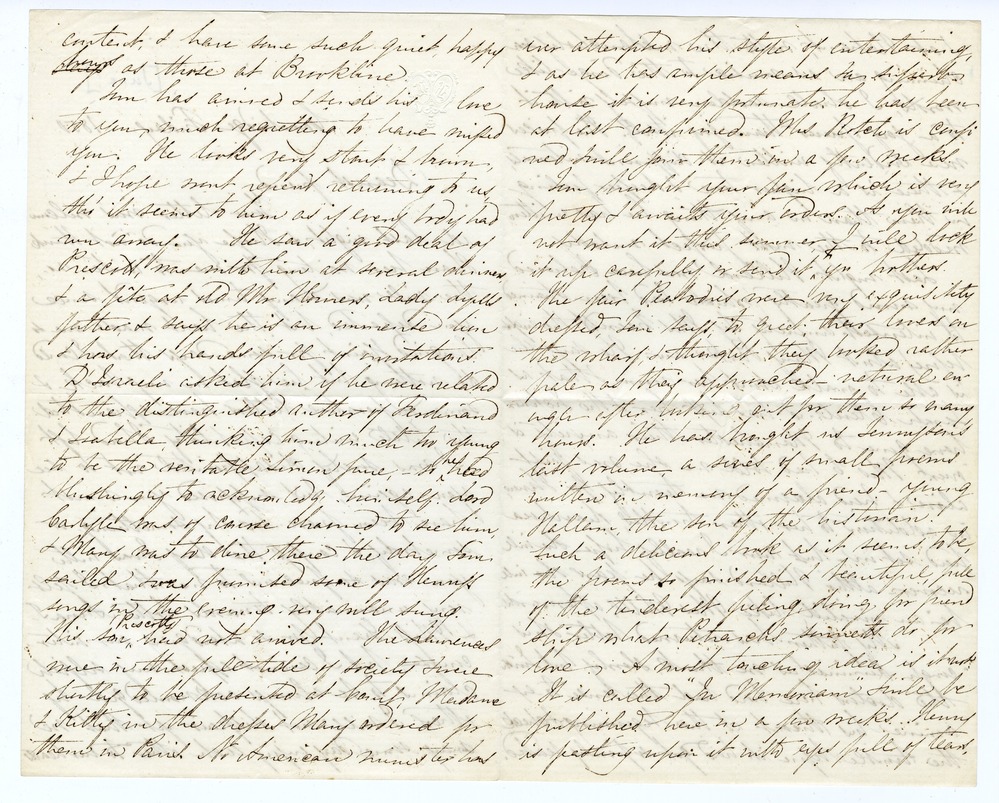 content, & have some such quiet happy
hours as those at Brookline.
Tom has arrived & sends his love
to you, much regretting to have missed
you. He looks very stout & brown,
& I hope wont repent returning to us,
tho' it seems to him as if every body had
run away. He saw a good deal of
Prescott, was with him at several dinners
& a fête at old Mr Horner's, Lady Lyell's
father, & says he is an immense lion
& has his hands full of invitations.
D'Israeli asked him if he were related
to the distinguished author of Ferdinand
& Isabella, thinking him much too young
to be the veritable Simon Pure, - so he had
blushingly to acknowledge himself. Lord
Carlisle was of course charmed to see him,
& Mary was to dine there the day Tom
sailed & was promised some of Henry's
songs in the evening very well sung.
His son, Prescott's had not arrived. The Lawrences
were in the full tide of society & were
shortly to be presented at court, Madame
& Kitty in the dresses Mary ordered for
them in Paris. No American minister has
ever attempted his style of entertaining,
& as he has ample means & a superb
house it is very fortunate he has been
at last confirmed. Mrs Rotch is confi
ned & will join them in a few weeks.
Tom brought your fan which is very
pretty & awaits your orders. As you will
not want it this summer I will lock
it up carefully or send it to yr brothers.
The fair Peabodies were very exquisitely
dressed, Tom says, to greet their lovers on
the wharf, & thought they looked rather
pale as they approached - natural en
ough after looking out for them so many
hours. He has brought us Tennyson's
last volume a series of small poems
written in memory of a friend - young
Hallam the son of the historian.
Such a delicious book as it seems to be
the poems so finished & beautiful, full
of the tenderest feeling, doing for friend
ship what Petrarch's sonnets do for
love. A most touching idea is it not
It is called "In Memoriam" & will be
published here in a few weeks. Henry
is pasting upon it with eyes full of tears.